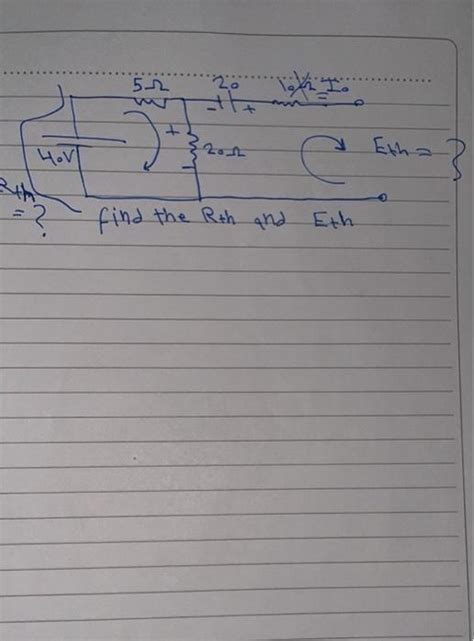 5Ω 20 10Ω = I0
- + + 20Ω - 40V Eth = ?
Rth = ?
find the Rth and Eth